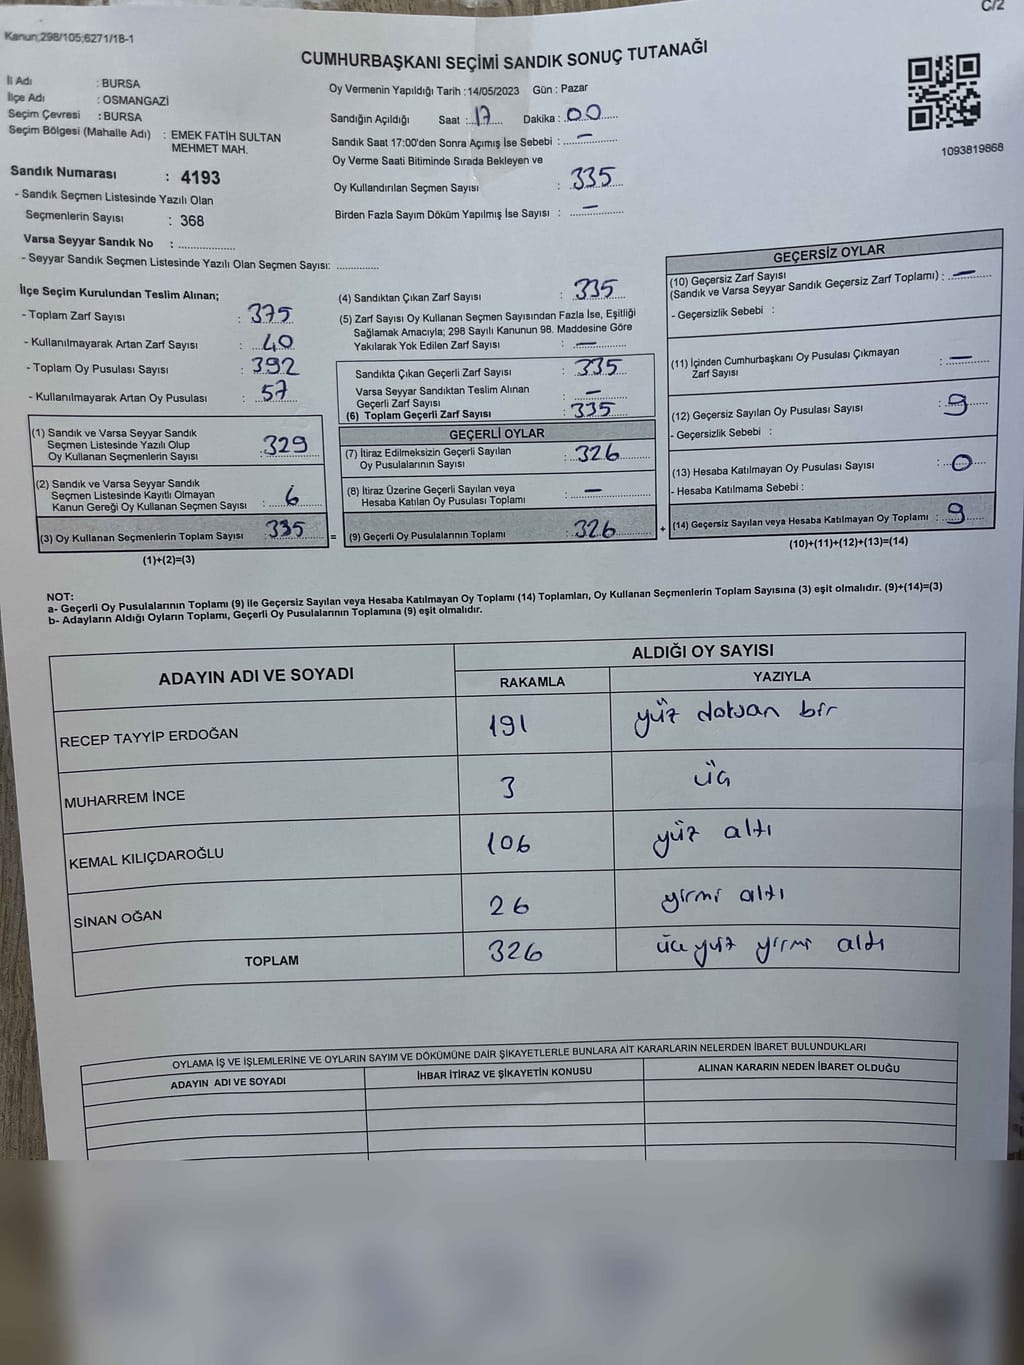 C/2
Kanun;298/105;6271/18-1
CUMHURBAŞKANI SEÇİMİ SANDIK SONUÇ TUTANAĞI
İl Adı : BURSA
İlçe Adı : OSMANGAZİ
Seçim Çevresi : BURSA
Seçim Bölgesi (Mahalle Adı) : EMEK FATİH SULTAN
MEHMET MAH.
Sandık Numarası : 4193
- Sandık Seçmen Listesinde Yazılı Olan
Seçmenlerin Sayısı : 368
Varsa Seyyar Sandık No : ................
- Seyyar Sandık Seçmen Listesinde Yazılı Olan Seçmen Sayısı: ............
Oy Vermenin Yapıldığı Tarih :14/05/2023 Gün : Pazar
Sandığın Açıldığı Saat : 17 Dakika : 00
Sandık Saat 17:00'den Sonra Açımış İse Sebebi : —
Oy Verme Saati Bitiminde Sırada Bekleyen ve
Oy Kullandırılan Seçmen Sayısı : 335
Birden Fazla Sayım Döküm Yapılmış İse Sayısı : —
1093819868
İlçe Seçim Kurulundan Teslim Alınan;
- Toplam Zarf Sayısı : 375
- Kullanılmayarak Artan Zarf Sayısı : 40
- Toplam Oy Pusulası Sayısı : 392
- Kullanılmayarak Artan Oy Pusulası : 57
(1) Sandık ve Varsa Seyyar Sandık
Seçmen Listesinde Yazılı Olup
Oy Kullanan Seçmenlerin Sayısı : 329
(2) Sandık ve Varsa Seyyar Sandık
Seçmen Listesinde Kayıtlı Olmayan
Kanun Gereği Oy Kullanan Seçmen Sayısı : 6
(3) Oy Kullanan Seçmenlerin Toplam Sayısı : 335 =
(1)+(2)=(3)
(4) Sandıktan Çıkan Zarf Sayısı : 335
(5) Zarf Sayısı Oy Kullanan Seçmen Sayısından Fazla İse, Eşitliği
Sağlamak Amacıyla; 298 Sayılı Kanunun 98. Maddesine Göre
Yakılarak Yok Edilen Zarf Sayısı : —
Sandıkta Çıkan Geçerli Zarf Sayısı : 335
Varsa Seyyar Sandıktan Teslim Alınan
Geçerli Zarf Sayısı : —
(6) Toplam Geçerli Zarf Sayısı : 335
GEÇERLİ OYLAR
(7) İtiraz Edilmeksizin Geçerli Sayılan
Oy Pusulalarının Sayısı : 326
(8) İtiraz Üzerine Geçerli Sayılan veya
Hesaba Katılan Oy Pusulası Toplamı : —
(9) Geçerli Oy Pusulalarının Toplamı : 326 +
GEÇERSİZ OYLAR
(10) Geçersiz Zarf Sayısı
(Sandık ve Varsa Seyyar Sandık Geçersiz Zarf Toplamı) : —
- Geçersizlik Sebebi :
(11) İçinden Cumhurbaşkanı Oy Pusulası Çıkmayan
Zarf Sayısı : —
(12) Geçersiz Sayılan Oy Pusulası Sayısı : 9
- Geçersizlik Sebebi :
(13) Hesaba Katılmayan Oy Pusulası Sayısı : 0
- Hesaba Katılmama Sebebi :
(14) Geçersiz Sayılan veya Hesaba Katılmayan Oy Toplamı : 9
(10)+(11)+(12)+(13)=(14)
NOT:
a- Geçerli Oy Pusulalarının Toplamı (9) ile Geçersiz Sayılan veya Hesaba Katılmayan Oy Toplamı (14) Toplamları, Oy Kullanan Seçmenlerin Toplam Sayısına (3) eşit olmalıdır. (9)+(14)=(3)
b- Adayların Aldığı Oyların Toplamı, Geçerli Oy Pusulalarının Toplamına (9) eşit olmalıdır.
ADAYIN ADI VE SOYADI ALDIĞI OY SAYISI
RAKAMLA YAZIYLA
RECEP TAYYİP ERDOĞAN 191 yüz doksan bir
MUHARREM İNCE 3 üç
KEMAL KILIÇDAROĞLU 106 yüz altı
SİNAN OĞAN 26 yirmi altı
TOPLAM 326 üç yüz yirmi altı
OYLAMA İŞ VE İŞLEMLERİNE VE OYLARIN SAYIM VE DÖKÜMÜNE DAİR ŞİKAYETLERLE BUNLARA AİT KARARLARIN NELERDEN İBARET BULUNDUKLARI
ADAYIN ADI VE SOYADI İHBAR İTİRAZ VE ŞİKAYETİN KONUSU ALINAN KARARIN NEDEN İBARET OLDUĞU